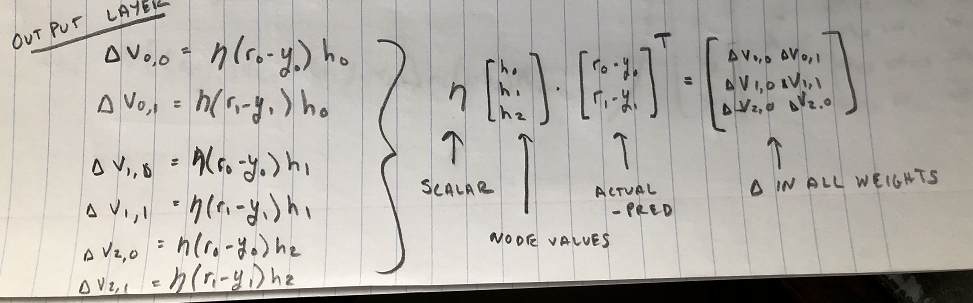 OUTPUT LAYER
Δ V0,0 = η(r0-y0) h0
Δ V0,1 = η(r1-y1) h0
Δ V1,0 = η(r0-y0) h1
Δ V1,1 = η(r1-y1) h1
Δ V2,0 = η(r0-y0) h2
Δ V2,1 = η(r1-y1) h2
η [h0 h1 h2] · [r0-y0 r1-y1]^T = [ΔV0,0 ΔV0,1
ΔV1,0 ΔV1,1
ΔV2,0 ΔV2,0]
SCALAR
NODE VALUES
ACTUAL
-PRED
Δ IN ALL WEIGHTS